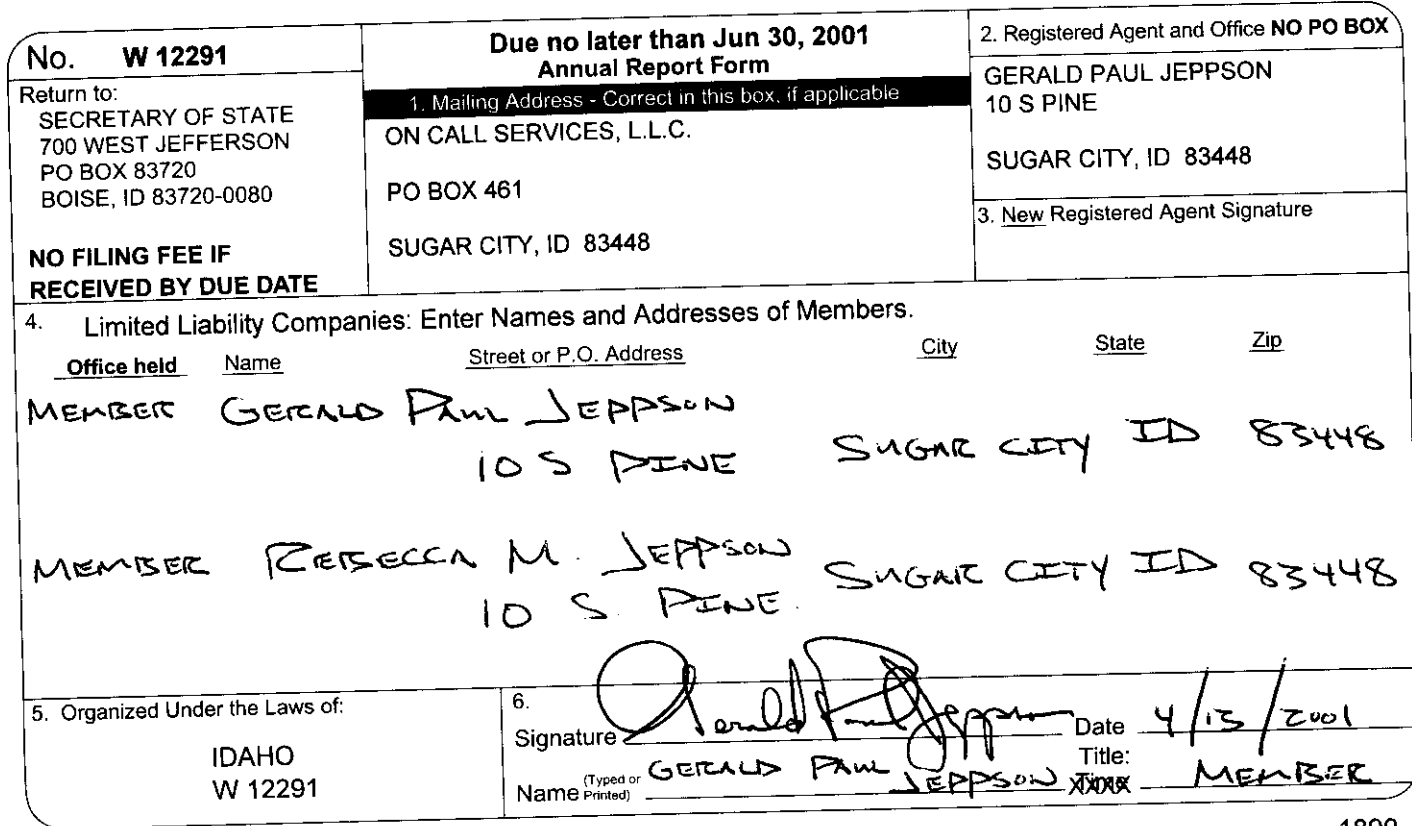 No. W 12291
Return to:
SECRETARY OF STATE
700 WEST JEFFERSON
PO BOX 83720
BOISE, ID 83720-0080
NO FILING FEE IF
RECEIVED BY DUE DATE
Due no later than Jun 30, 2001
Annual Report Form
1. Mailing Address - Correct in this box, if applicable
ON CALL SERVICES, L.L.C.
PO BOX 461
SUGAR CITY, ID 83448
2. Registered Agent and Office NO PO BOX
GERALD PAUL JEPPSON
10 S PINE
SUGAR CITY, ID 83448
3. New Registered Agent Signature
4. Limited Liability Companies: Enter Names and Addresses of Members.
Office held Name Street or P.O. Address City State Zip
MEMBER GERALD PAUL JEPPSON
10 S PINE SUGAR CITY ID 83448
MEMBER REBECCA M. JEPPSON
10 S. PINE. SUGAR CITY ID 83448
5. Organized Under the Laws of:
IDAHO
W 12291
6.
Signature Gerald Paul Jeppson Date 4/13/2001
Name (Typed or Printed) GERALD PAUL JEPPSON Title: MEMBER